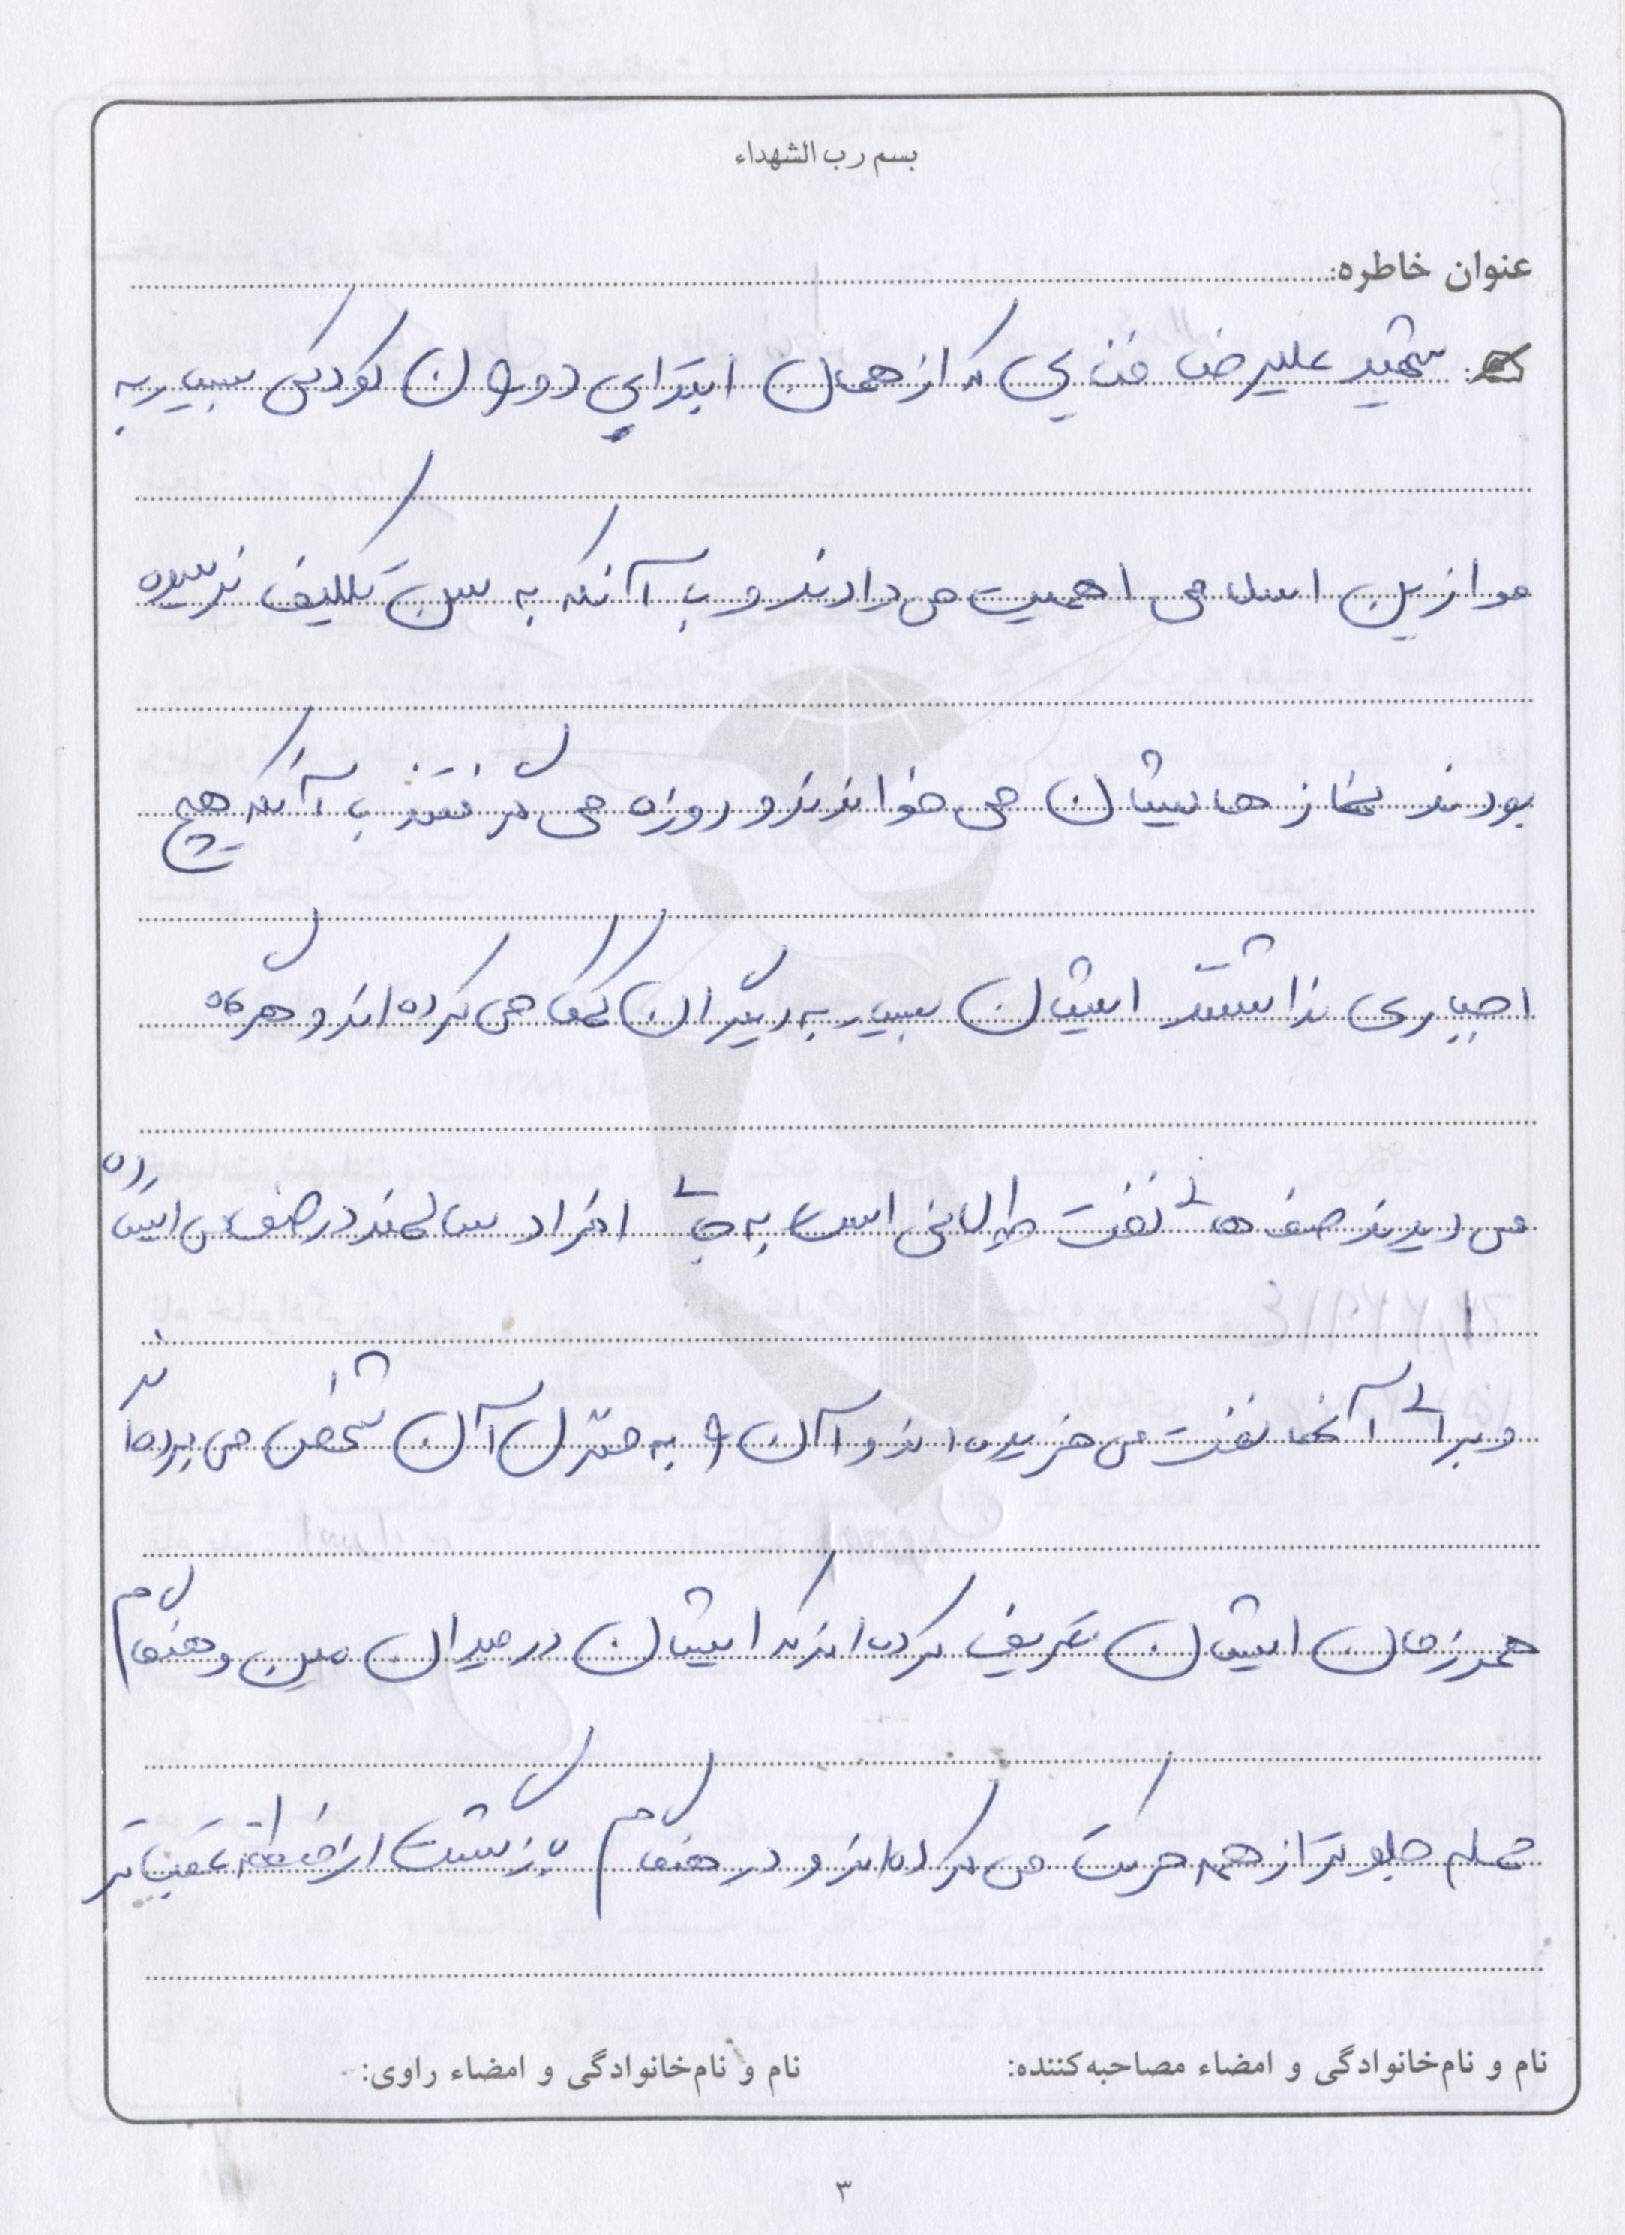 بسم رب الشهداء
عنوان خاطره:
شهید علیرضا فنایی که از همان ابتدای دوران کودکی بسیار به
موازین اسلامی اهمیت می دادند و با آنکه به سن تکلیف نرسیده
بودند نماز هایشان می خواندند و روزه می گرفتند با آنکه هیچ
اجباری نداشتند ایشان بسیار به دیگران کمک می کرده اند و هرگاه
می دیدند صف های نفت طولانی است به جای افراد سالمند در صف می ایستاده
و برای آنها نفت می خریده اند و آن را به منزل آن شخص می برده اند
همرزمان ایشان تعریف کرده اند که ایشان در میدان مین و هنگام
حمله جلوتر از همه حرکت می کرده اند و در هنگام بازگشت از منطقه عقب تر
نام و نام‌خانوادگی و امضاء مصاحبه‌کننده:
نام و نام‌خانوادگی و امضاء راوی:
۳